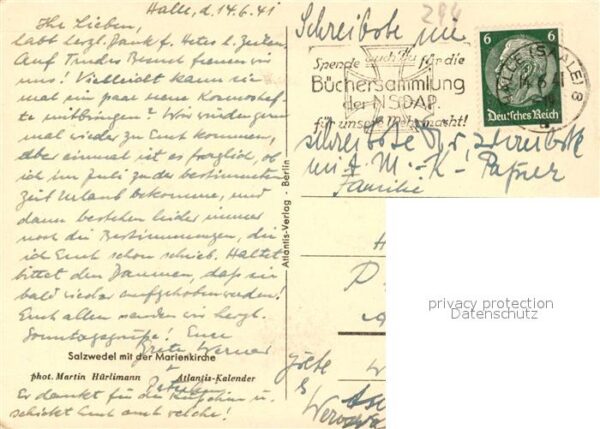 Halle, d. 14.6.41
Ihr Lieben,
habt herzl. Dank f. Zeilen.
Auf Trudes Besuch freuen wir
uns! Vielleicht kann sie
mal ein paar neue Kosmoshef-
te mitbringen? Wir würden gern
mal wieder zu Euch kommen,
aber einmal ist es fraglich, ob
ich im Juli zu der bestimmten
Zeit Urlaub bekomme, und
dann bestehen leider immer
noch die Bestimmungen, die
ich Euch schon schrieb. Haltet
bitte den Daumen, daß sie
bald wieder aufgehoben werden!
Euch allen senden wir herzl.
Sonntagsgrüße! Eure
Grete Werner
+
Salzwedel mit der Marienkirche
phot. Martin Hürlimann Atlantis-Kalender
Er dankt für die u.
schickt Euch auch welche!
Atlantis-Verlag - Berlin
294
Spende auch Du für die
Büchersammlung
der NSDAP.
für unsere Wehrmacht!
6 6
Deutsches Reich
HALLE (SAALE) 8
14.6.41
mit A M - K -
Familie
privacy protection
Datenschutz